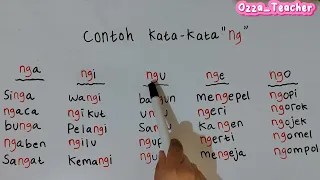 Ozza_Teacher
Contoh Kata-Kata "ng"
nga ngi ngu nge ngo
Singa wangi bangun mengepel ngopi
ngaca ngikut ngeri ngorok
bunga Pelangi kangen ngojek
ngaben ngilu ngerti ngomel
Sangat Kemangi mengeja ngompol